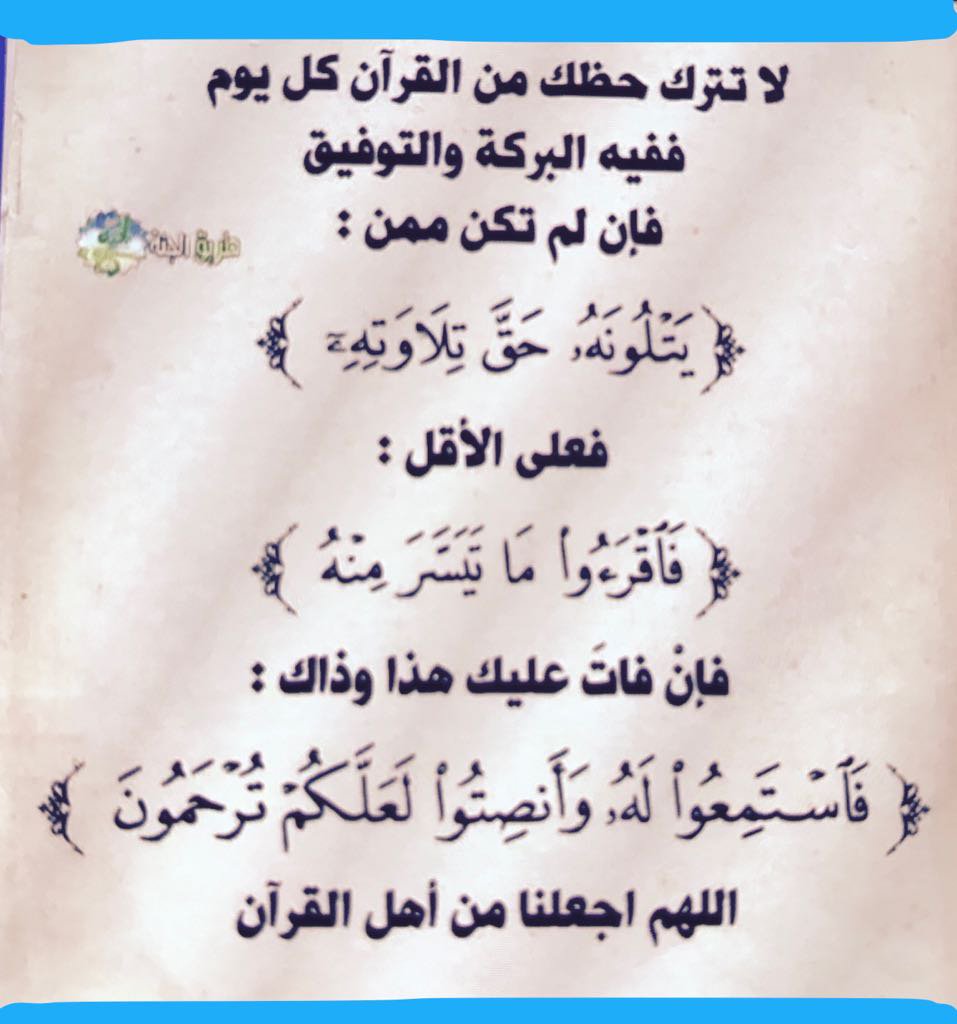 لا تترك حظك من القرآن كل يوم
ففيه البركة والتوفيق
فإن لم تكن ممن :
طريق الجنة
﴿ يَتْلُونَهُۥ حَقَّ تِلَاوَتِهِۦٓ ﴾
فعلى الأقل :
﴿ فَٱقْرَءُوا۟ مَا تَيَسَّرَ مِنْهُ ﴾
فإنْ فاتَ عليك هذا وذاك :
﴿ فَٱسْتَمِعُوا۟ لَهُۥ وَأَنصِتُوا۟ لَعَلَّكُمْ تُرْحَمُونَ ﴾
اللهم اجعلنا من أهل القرآن